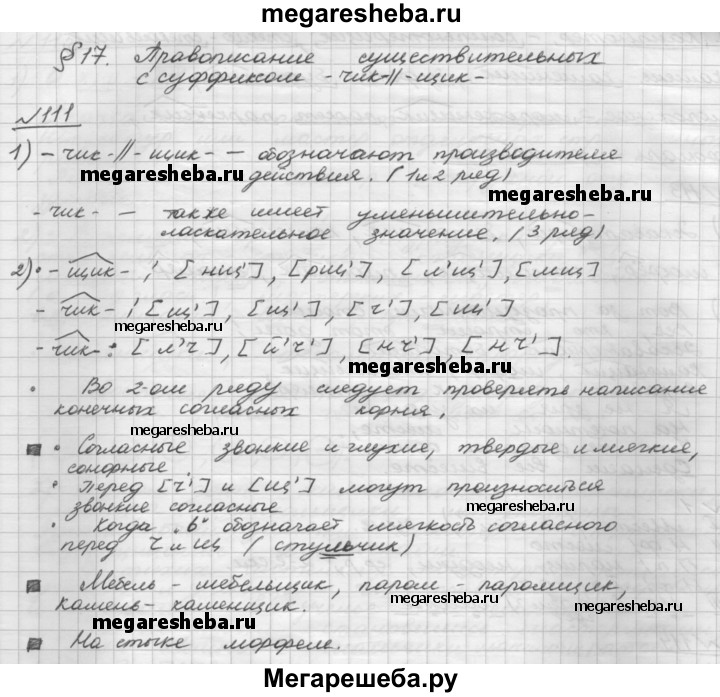 megaresheba.ru
§ 17. Правописание существительных
с суффиксом -чик-// -щик-
№111
1) -чик-// -щик- — обозначают производителя
действия. (1 и 2 ряд)
megaresheba.ru megaresheba.ru
-чик- — также имеет уменьшительно-
ласкательное значение. (3 ряд)
2) • -щик- : [нщ'], [рщ'], [л'щ'], [мщ]
-чик- : [щ'], [щ'], [ч'], [щ']
megaresheba.ru
-чик- : [л'ч], [й'ч'], [нч'], [нч'].
megaresheba.ru
• Во 2-ом ряду следует проверять написание
конечных согласных корня.
megaresheba.ru megaresheba.ru
• Согласные звонкие и глухие, твердые и мягкие,
сонорные.
• Перед [ч'] и [щ'] могут произноситься
звонкие согласные
megaresheba.ru
• Когда „ь" обозначает мягкость согласного
перед ч и щ (стульчик)
Мебель - мебельщик, паром - паромщик,
камень - каменщик.
megaresheba.ru megaresheba.ru
На стыке морфем.
megaresheba.ru
Мегарешеба.ру